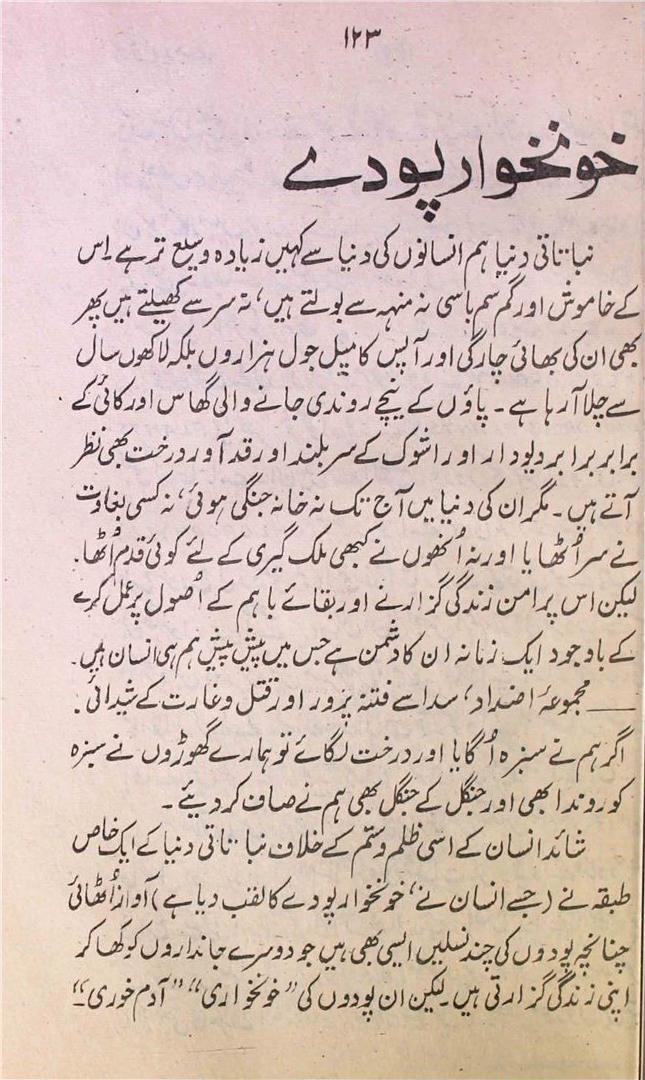 ۱۲۳
خونخوار پودے
نباتاتی دنیا ہم انسانوں کی دنیا سے کہیں زیادہ وسیع تر ہے۔ اس
کے خاموش اور گم سم باسی نہ منہہ سے بولتے ہیں، نہ سر سے کھیلتے ہیں پھر
بھی ان کی بھائی چارگی اور آپس کا میل جول ہزاروں بلکہ لاکھوں سال
سے چلا آ رہا ہے۔ پاؤں کے نیچے روندی جانے والی گھاس اور کائی کے
برابر برابر دیودار اور اشوک کے سر بلند اور قد آور درخت بھی نظر
آتے ہیں۔ مگر ان کی دنیا میں آج تک نہ خانہ جنگی ہوئی، نہ کسی بغاوت
نے سر اُٹھایا اور نہ اُنھوں نے کبھی ملک گیری کے لئے کوئی قدم اُٹھا۔
لیکن اس پر امن زندگی گزارنے اور بقائے باہم کے اُصول پر عمل کرنے
کے باوجود ایک زمانہ ان کا دشمن ہے جس میں پیش پیش ہم ہی انسان ہیں۔
—— مجموعۂ اضداد، سدا سے فتنہ پرور اور قتل و غارت کے شیدائی۔
اگر ہم نے سبزہ اُگایا اور درخت لگائے تو ہمارے گھوڑوں نے سبزہ
کو روندا بھی اور جنگل کے جنگل بھی ہم نے صاف کر دیئے۔
شائد انسان کے اسی ظلم و ستم کے خلاف نباتاتی دنیا کے ایک خاص
طبقہ نے (جسے انسان نے، خونخوار پودے کا لقب دیا ہے) آواز اُٹھائی
چنانچہ پودوں کی چند نسلیں ایسی بھی ہیں جو دوسرے جانداروں کو کھا کر
اپنی زندگی گزارتی ہیں۔ لیکن ان پودوں کی "خونخواری" "آدم خوری"۔